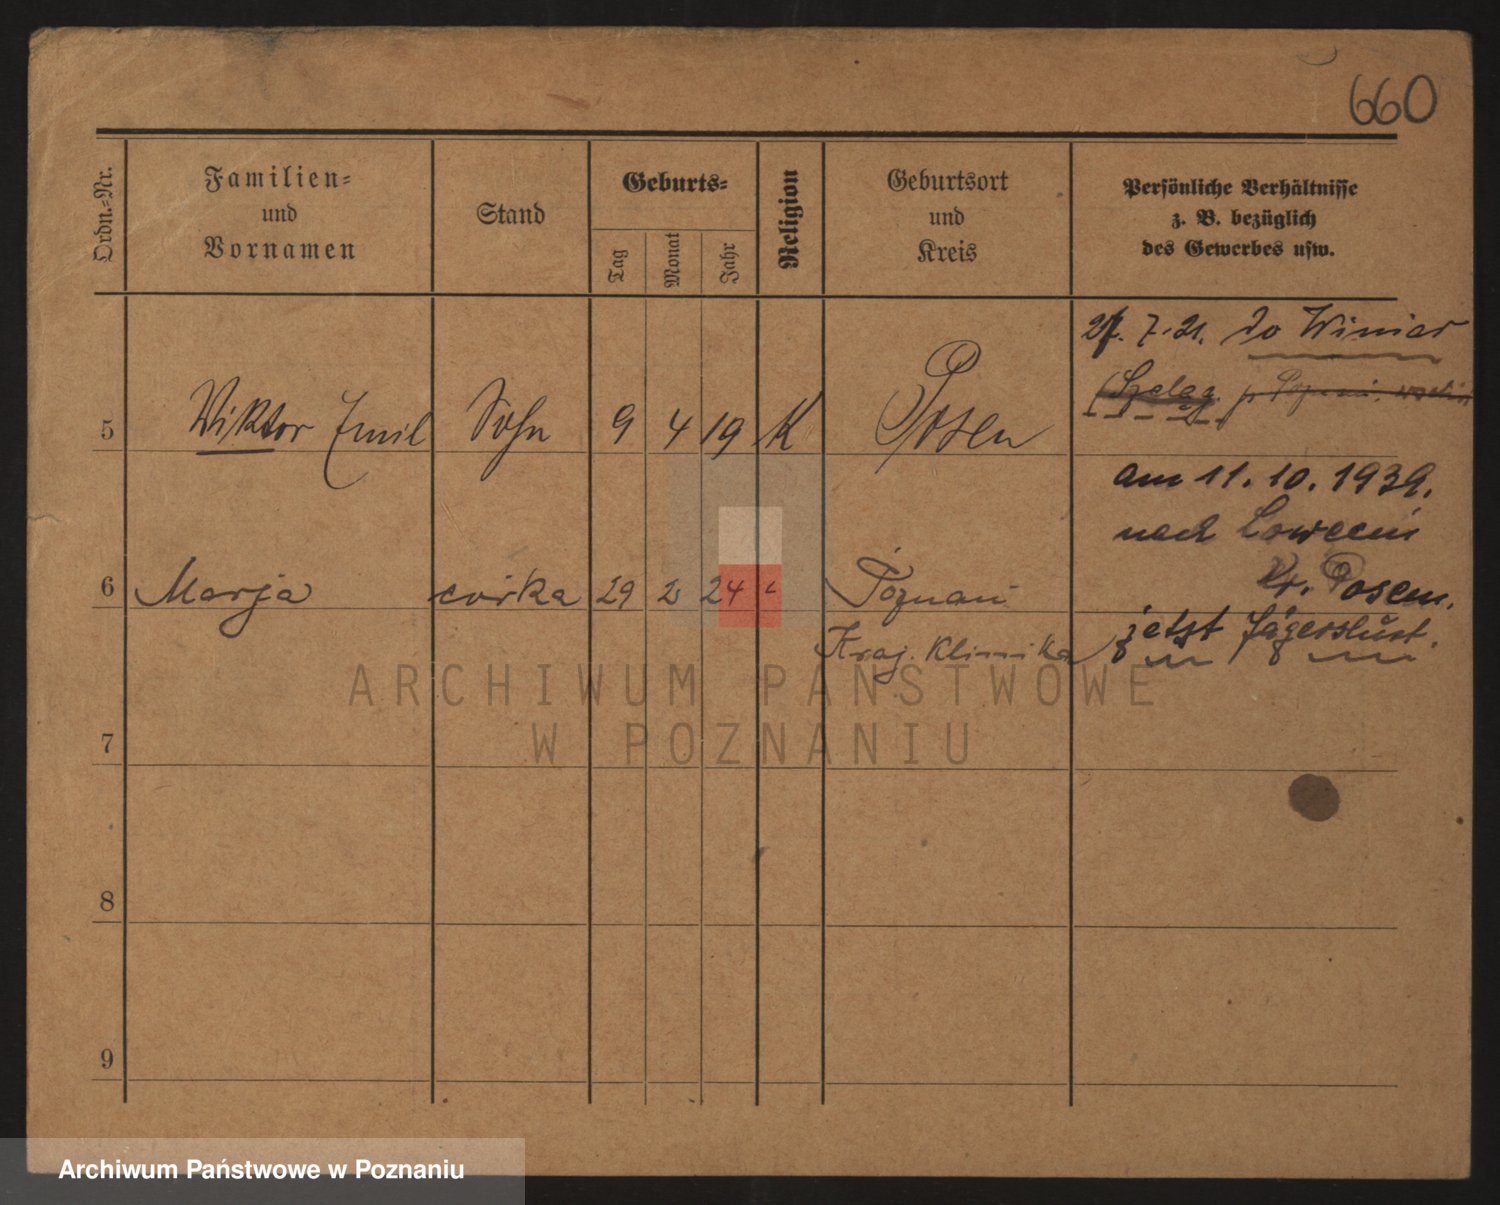 660
Ordn.-Nr.
Familien-
und
Vornamen
Stand
Geburts-
Tag
Monat
Jahr
Religion
Geburtsort
und
Kreis
Persönliche Verhältnisse
z. B. bezüglich
des Gewerbes usw.
27. 7. 21. do Winiar
(Szeląg p Poznań
5 Wiktor Emil Sohn 9 4 19 K Posen
am 11. 10. 1939.
nach Lowecin
Kr. Posen.
6 Marja córka 29 2 24 Poznań
Kraj. Klinika
jetzt Jägerslust.
7
8
9
ARCHIWUM PAŃSTWOWE
W POZNANIU
Archiwum Państwowe w Poznaniu